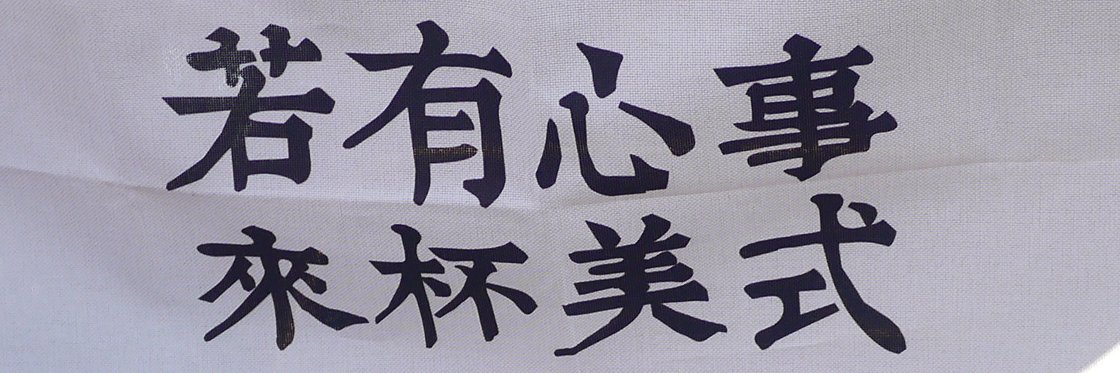 若有心事
來杯美式